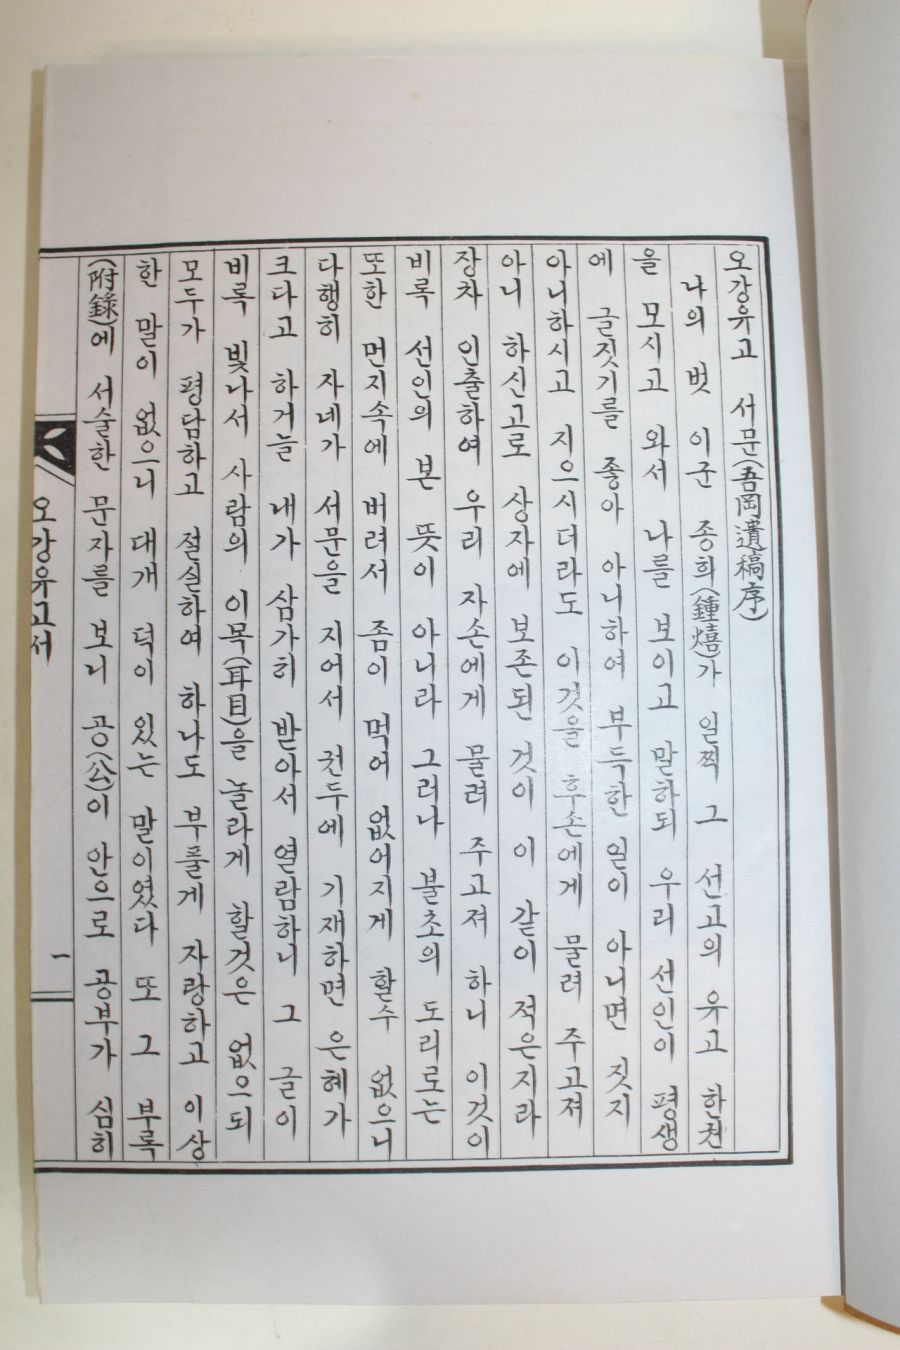 오강유고 서문(吾岡遺稿序)
나의 벗 이군 종희(鍾熺)가 일찍 그 선고의 유고 한권
을 모시고 와서 나를 보이고 말하되 우리 선인이 평생
에 글짓기를 좋아 아니하여 부득한 일이 아니면 짓지
아니하시고 지으시더라도 이것을 후손에게 물려 주고져
아니 하신고로 상자에 보존된 것이 이 같이 적은지라
장차 인출하여 우리 자손에게 물려 주고져 하니 이것이
비록 선인의 본 뜻이 아니라 그러나 불초의 도리로는
또한 먼지속에 버려서 좀이 먹어 없어지게 할수 없으니
다행히 자네가 서문을 지어서 권두에 기재하면 은혜가
크다고 하거늘 내가 삼가히 받아서 열람하니 그 글이
비록 빛나서 사람의 이목(耳目)을 놀라게 할것은 없으되
모두가 평담하고 절실하여 하나도 부풀게 자랑하고 이상
한 말이 없으니 대개 덕이 있는 말이였다 또 그 부록
(附錄)에 서술한 문자를 보니 공(公)이 안으로 공부가 심히
오강유고서
一